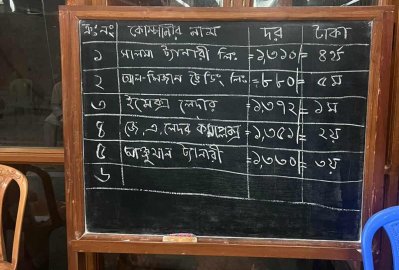 ক্রঃনং কোম্পানীর নাম দর টাকা
১ সালমা ট্যানারী লিঃ =১৩১০/= ৪র্থ
২ আল-মিজান ট্রেডিং লিঃ =৮৮০/= ৫ম
৩ ইমেক্স লেদার =১৩৭২/= ১ম
৪ জে, এ, লেদার কমপ্লেক্স =১,৩৫১/= ২য়
৫ আঞ্জুমান ট্যানারী =১,৩৩০/= ৩য়
৬